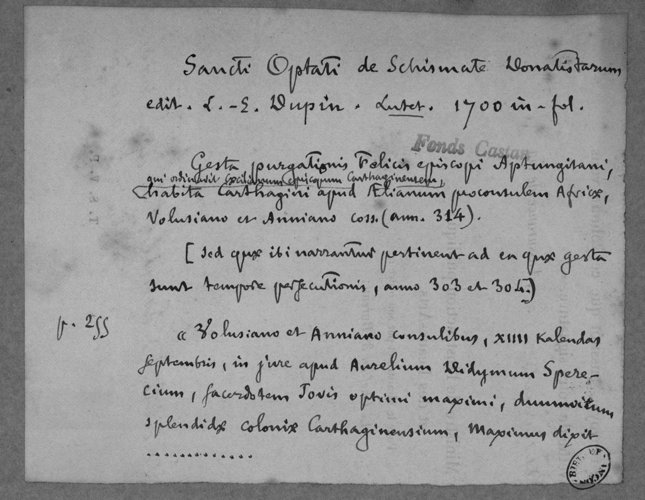 Sancti Optati de Schismate Donatistarum
edit. L.-E. Dupin. Lutet. 1700 in-fol.
Fonds Castan
Gesta purgationis Felicis episcopi Aptungitani,
qui ordinavit Cæcilianum episcopum Carthaginensem,
habita Carthagini apud Ælianum proconsulem Africæ,
Volusiano et Anniano coss. (ann. 314).
[sed quæ ibi narrantur pertinent ad ea quæ gesta
sunt tempore persecutionis, anno 303 et 304.]
p. 255
« Volusiano et Anniano consulibus, XIIII Kalendas
septembris, in jure apud Aurelium Didymum Spere-
cium, sacerdotem Jovis optimi maximi, duumvirum
splendidæ coloniæ Carthaginensium, Maximus dixit
.............